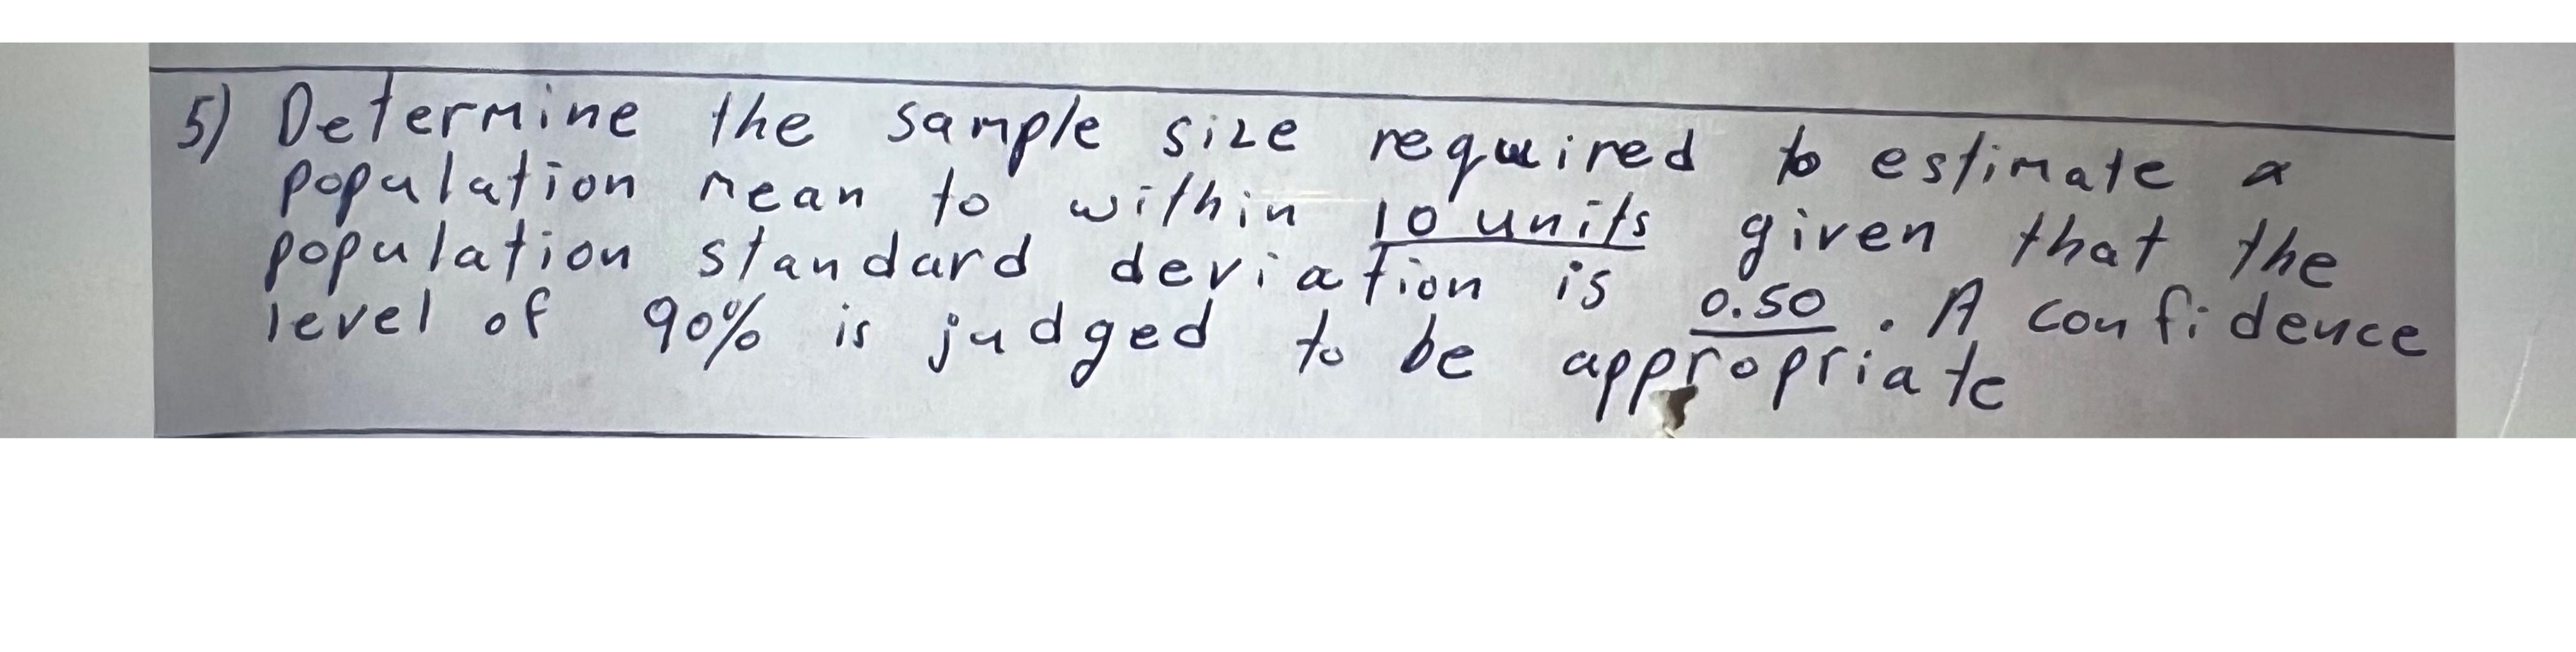 5) Determine the sample size required to estimate a
population mean to within 10 units given that the
population standard deviation is 0.50. A confidence
level of 90% is judged to be appropriate